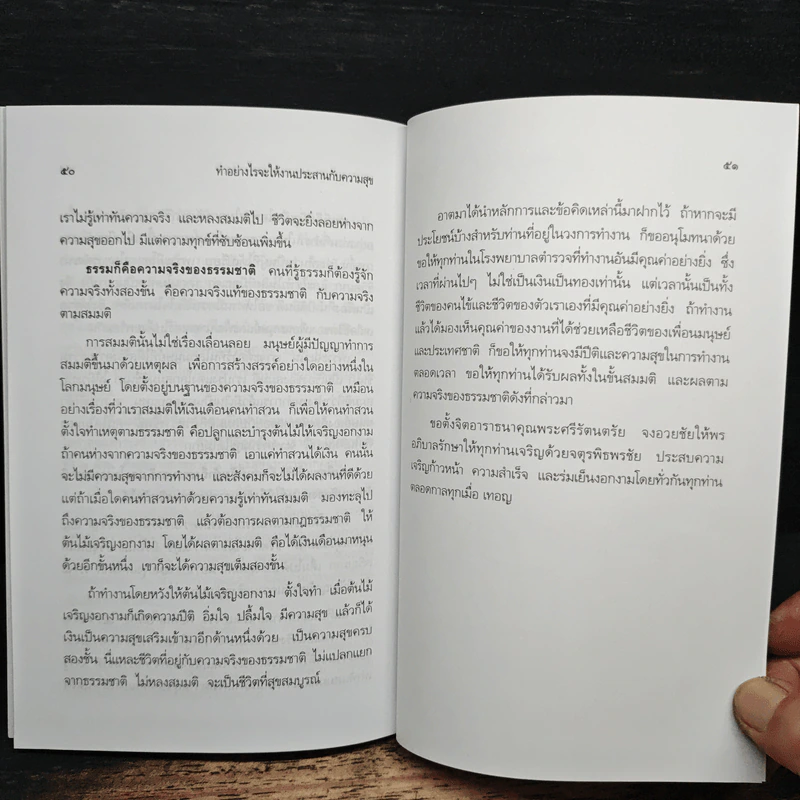 ๕๐
ทำอย่างไรจะให้งานประสานกับความสุข
เราไม่รู้เท่าทันความจริง และหลงสมมติไป ชีวิตจะยิ่งลอยห่างจาก
ความสุขออกไป มีแต่ความทุกข์ที่ซับซ้อนเพิ่มขึ้น
ธรรมก็คือความจริงของธรรมชาติ คนที่รู้ธรรมก็ต้องรู้จัก
ความจริงทั้งสองขั้น คือความจริงแท้ของธรรมชาติ กับความจริง
ตามสมมติ
การสมมตินั้นไม่ใช่เรื่องเลื่อนลอย มนุษย์ผู้มีปัญญาทำการ
สมมติขึ้นมาด้วยเหตุผล เพื่อการสร้างสรรค์อย่างใดอย่างหนึ่งใน
โลกมนุษย์ โดยตั้งอยู่บนฐานของความจริงของธรรมชาติ เหมือน
อย่างเรื่องที่ว่าเราสมมติให้เงินเดือนคนทำสวน ก็เพื่อให้คนทำสวน
ตั้งใจทำเหตุตามธรรมชาติ คือปลูกและบำรุงต้นไม้ให้เจริญงอกงาม
ถ้าคนห่างจากความจริงของธรรมชาติ เอาแค่ทำสวนได้เงิน คนนั้น
จะไม่มีความสุขจากการทำงาน และสังคมก็จะไม่ได้ผลงานที่ดีด้วย
แต่ถ้าเมื่อใดคนทำสวนทำด้วยความรู้เท่าทันสมมติ มองทะลุไป
ถึงความจริงของธรรมชาติ แล้วต้องการผลตามกฎธรรมชาติ ให้
ต้นไม้เจริญงอกงาม โดยได้ผลตามสมมติ คือได้เงินเดือนมาหนุน
ด้วยอีกขั้นหนึ่ง เขาก็จะได้ความสุขเต็มสองขั้น
ถ้าทำงานโดยหวังให้ต้นไม้เจริญงอกงาม ตั้งใจทำ เมื่อต้นไม้
เจริญงอกงามก็เกิดความปีติ อิ่มใจ ปลื้มใจ มีความสุข แล้วก็ได้
เงินเป็นความสุขเสริมเข้ามาอีกด้านหนึ่งด้วย เป็นความสุขครบ
สองชั้น นี่แหละชีวิตที่อยู่กับความจริงของธรรมชาติ ไม่แปลกแยก
จากธรรมชาติ ไม่หลงสมมติ จะเป็นชีวิตที่สุขสมบูรณ์
๕๑
อาตมาได้นำหลักการและข้อคิดเหล่านี้มาฝากไว้ ถ้าหากจะมี
ประโยชน์บ้างสำหรับท่านที่อยู่ในวงการทำงาน ก็ขออนุโมทนาด้วย
ขอให้ทุกท่านในโรงพยาบาลตำรวจที่ทำงานอันมีคุณค่าอย่างยิ่ง ซึ่ง
เวลาที่ผ่านไปๆ ไม่ใช่เป็นเงินเป็นทองเท่านั้น แต่เวลานั้นเป็นทั้ง
ชีวิตของคนไข้และชีวิตของตัวเราเองที่มีคุณค่าอย่างยิ่ง ถ้าทำงาน
แล้วได้มองเห็นคุณค่าของงานที่ได้ช่วยเหลือชีวิตของเพื่อนมนุษย์
และประเทศชาติ ก็ขอให้ทุกท่านจงมีปีติและความสุขในการทำงาน
ตลอดเวลา ขอให้ทุกท่านได้รับผลทั้งในขั้นสมมติ และผลตาม
ความจริงของธรรมชาติดังที่กล่าวมา
ขอตั้งจิตอาราธนาคุณพระศรีรัตนตรัย จงอวยชัยให้พร
อภิบาลรักษาให้ทุกท่านเจริญด้วยจตุรพิธพรชัย ประสบความ
เจริญก้าวหน้า ความสำเร็จ และร่มเย็นงอกงามโดยทั่วกันทุกท่าน
ตลอดกาลทุกเมื่อ เทอญ